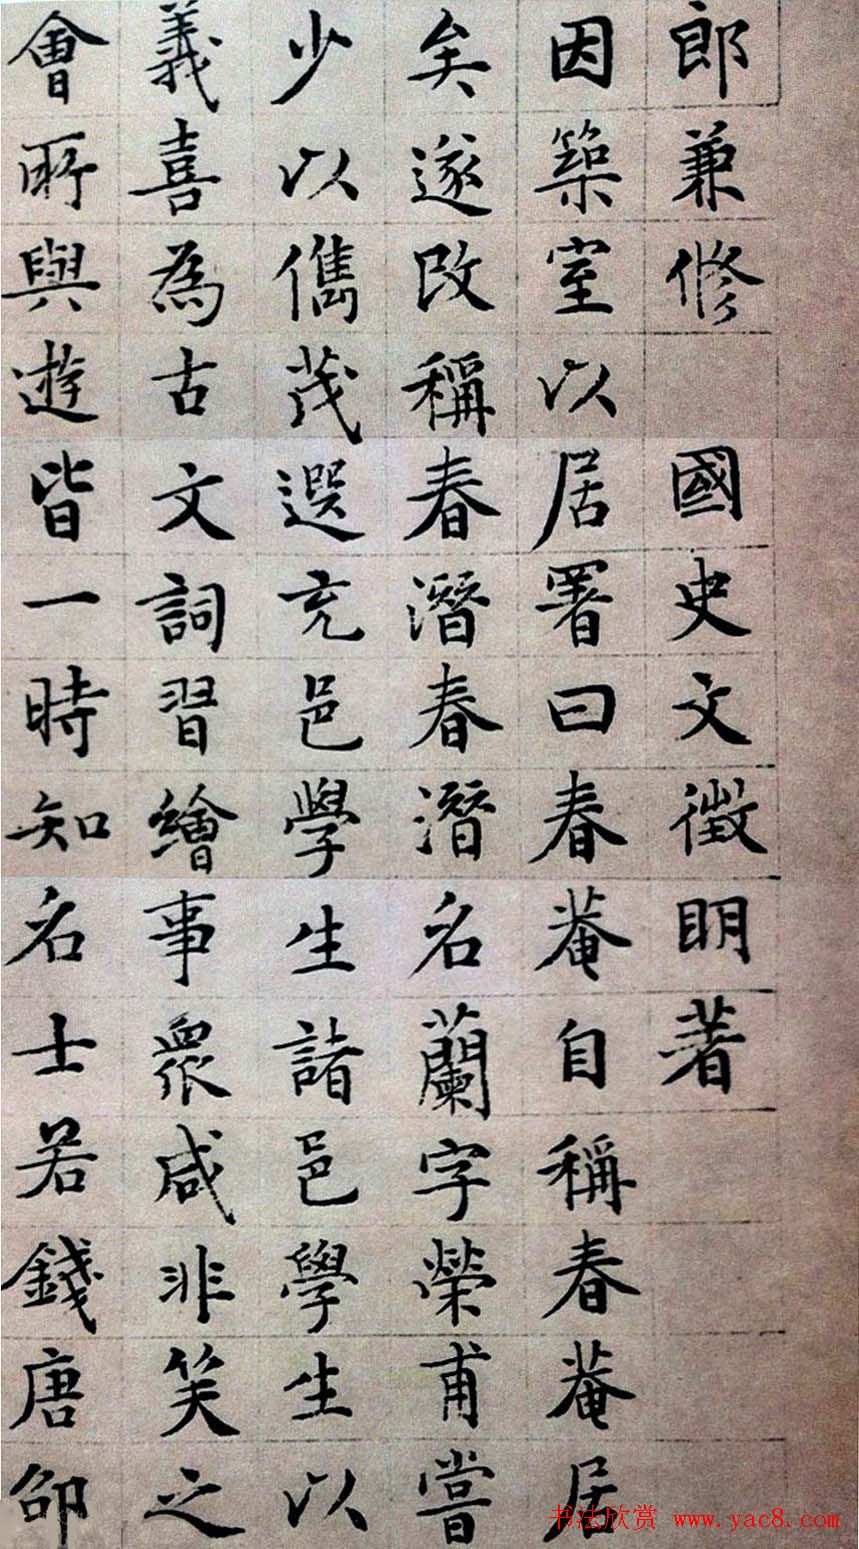 郎兼修 國史文徵明著
因築室以居署曰春菴自稱春菴居
矣遂改稱春潛春潛名蘭字榮甫嘗
少以儁茂選充邑學生諸邑學生以
義喜為古文詞習繪事眾咸非笑之
會所與遊皆一時知名士若錢唐邵
书法欣赏 www.yac8.com